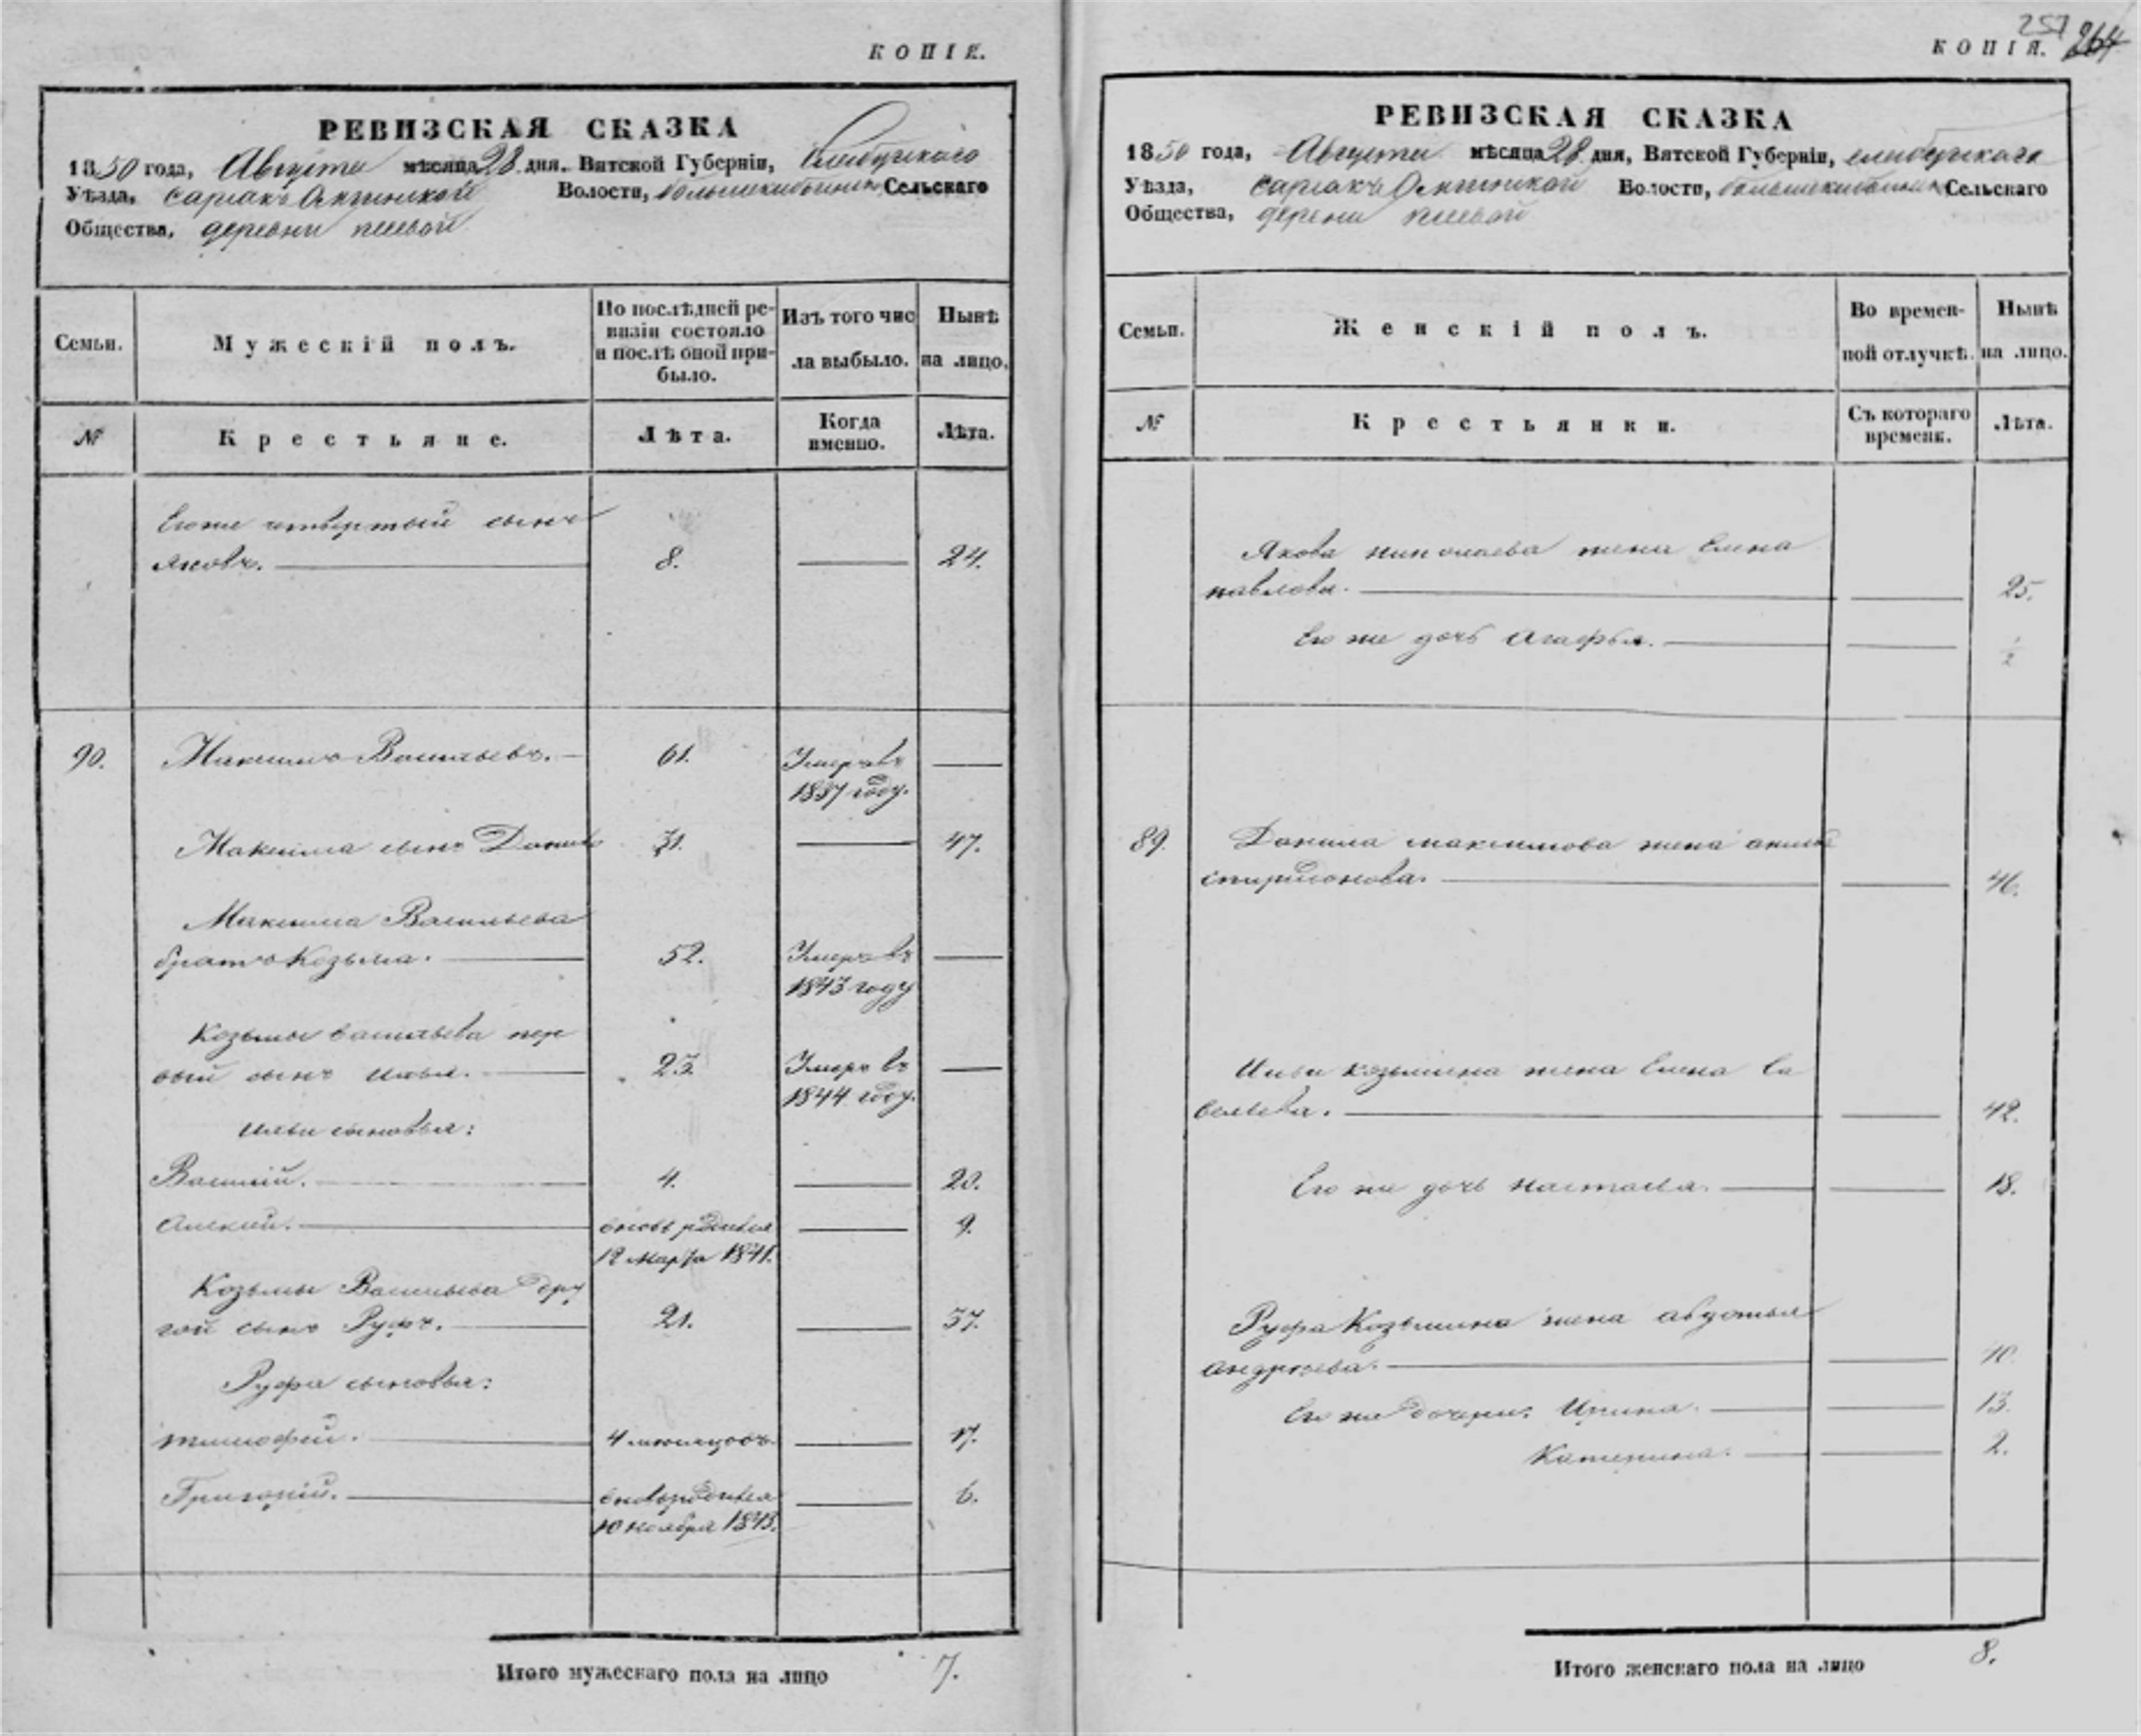 КОПІЯ.
РЕВИЗСКАЯ СКАЗКА
1850 года, Августа мѣсяца 28 дня. Вятской Губерніи, Елабужского
Уѣзда, Волости, Сельскаго
Общества, деревни
Семьи.
Мужескій полъ.
По послѣдней ре-
визіи состояло
и послѣ оной при-
было.
Изъ того чис
ла выбыло.
Нынѣ
на лицо.
№
Крестьяне.
Лѣта.
Когда
именно.
Лѣта.
Его же четвертый сынъ
Яковъ. 8. 24.
90. Максимъ Васильевъ. 61. Умеръ въ
1837 году.
Максима сынъ Данило 31. 47.
Максима Васильева
братъ Козьма. 52. Умеръ въ
1843 году
Козьмы Васильева пер
вый сынъ Илья. 23. Умеръ въ
1844 году.
Ильи сыновья:
Василій. 4. 20.
Алексей. вновь родился 9.
12 марта 1841.
Козьмы Васильева дру
гой сынъ Руфъ. 21. 37.
Руфа сыновья:
Тимофей. 4 месяцовъ 17.
Григорій. вновь родился 6.
10 ноября 1843.
Итого мужескаго пола на лицо 7.
257
КОПІЯ. 264
РЕВИЗСКАЯ СКАЗКА
1850 года, Августа мѣсяца 28 дня, Вятской Губерніи, елабужского
Уѣзда, Волости, Сельскаго
Общества,
Семьи.
Женскій полъ.
Во времен-
ной отлучкѣ.
Нынѣ
на лицо.
№
Крестьянки.
Съ котораго
времени.
Лѣта.
Якова николаева жена Елена
павлова. 25.
Его же дочь Агафья. 1/2
89. Данила максимова жена
спиридонова. 46.
Ильи козьмина жена Елена Са
вельева. 42.
Его же дочь настасья. 18.
Руфа Козьмина жена авдотья
андреева. 40.
Его же дочери: Ирина. 13.
Катерина. 2.
Итого женскаго пола на лицо 8.